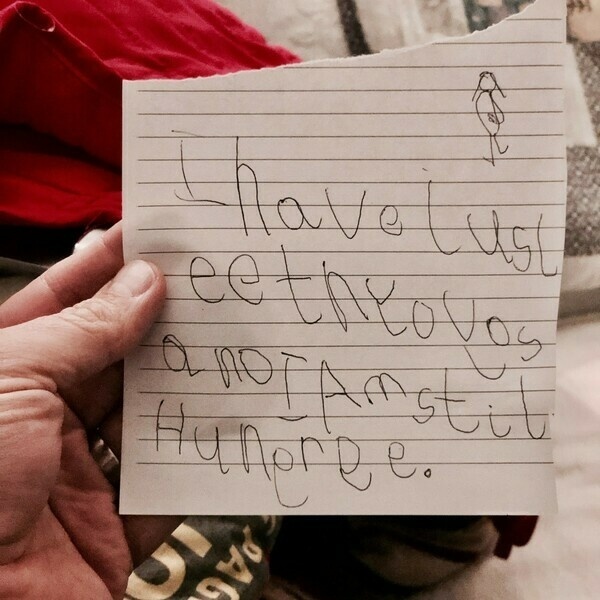 I have jusl
ee thr yovos
a no I Am stil
Hungree.